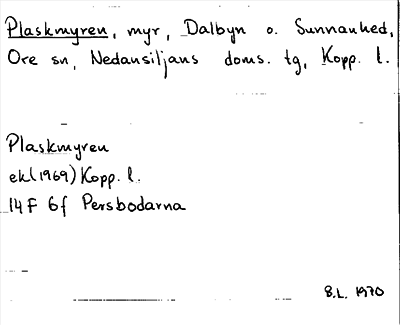 Plaskmyren, myr, Dalbyn o. Sunnanhed,
Ore sn, Nedansiljans doms. tg, Kopp. l.
Plaskmyren
ekl(1969) Kopp. l.
14F 6f Persbodarna
B.L. 1970